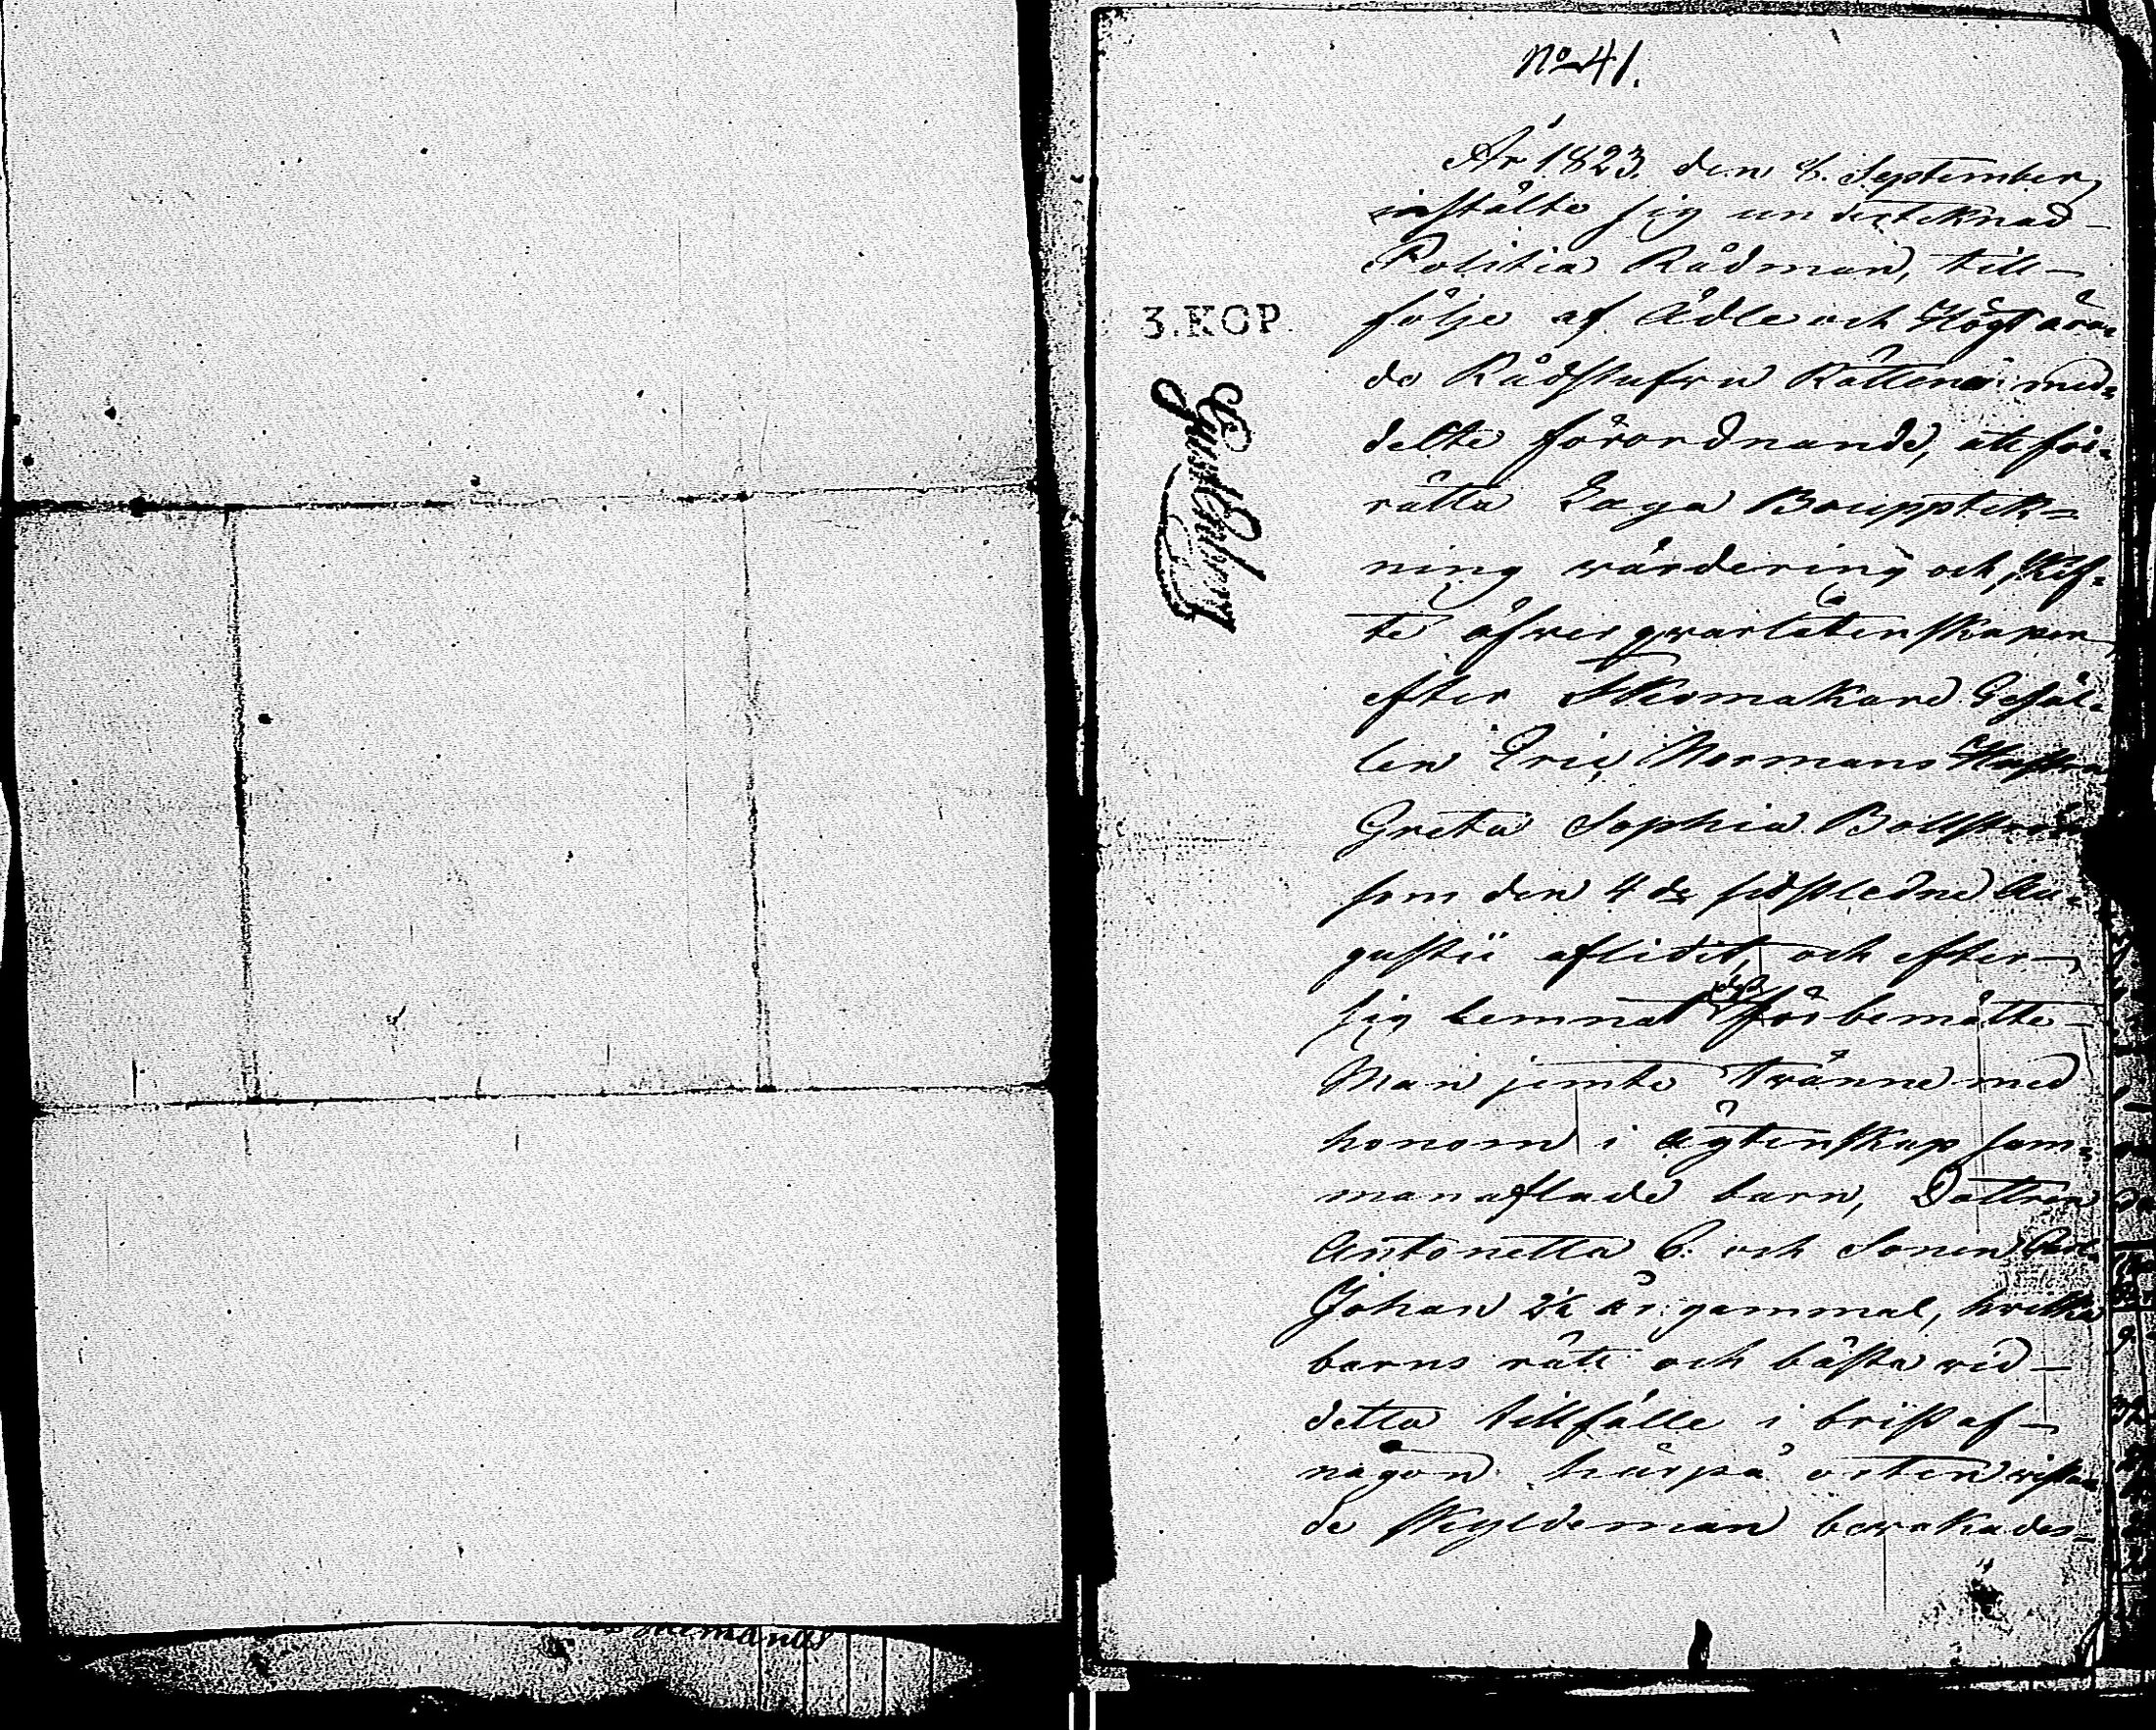 No 41.
År 1823. den 8. September,
instälte sig underteknad
Politie Rådman, till
följe af Ädle och Högtära-
de Rådstufvu Rättens med-
delte förordnande, att för-
rätta Laga Boupptek-
ning värdering och Skif-
te öfver qvarlåtenskapen
efter Skomakare Gesäl-
len Eric Normans Hustru
3.KOP
Greta Sophia Bollström
som den 4de sidstledne Au-
gustii aflidit, och efter
sig lemnat förbemälte
Man jemte tvänne med
honom i ägtenskap sam-
manaflade barn, Dottren
Antonetta 6. och Sonen Carl
Johan 2½ år gammal, hvilka
barns rätt och bästa vid
detta tillfälle i brist af
någon härpå orten vistan-
de Skyldeman bevakades